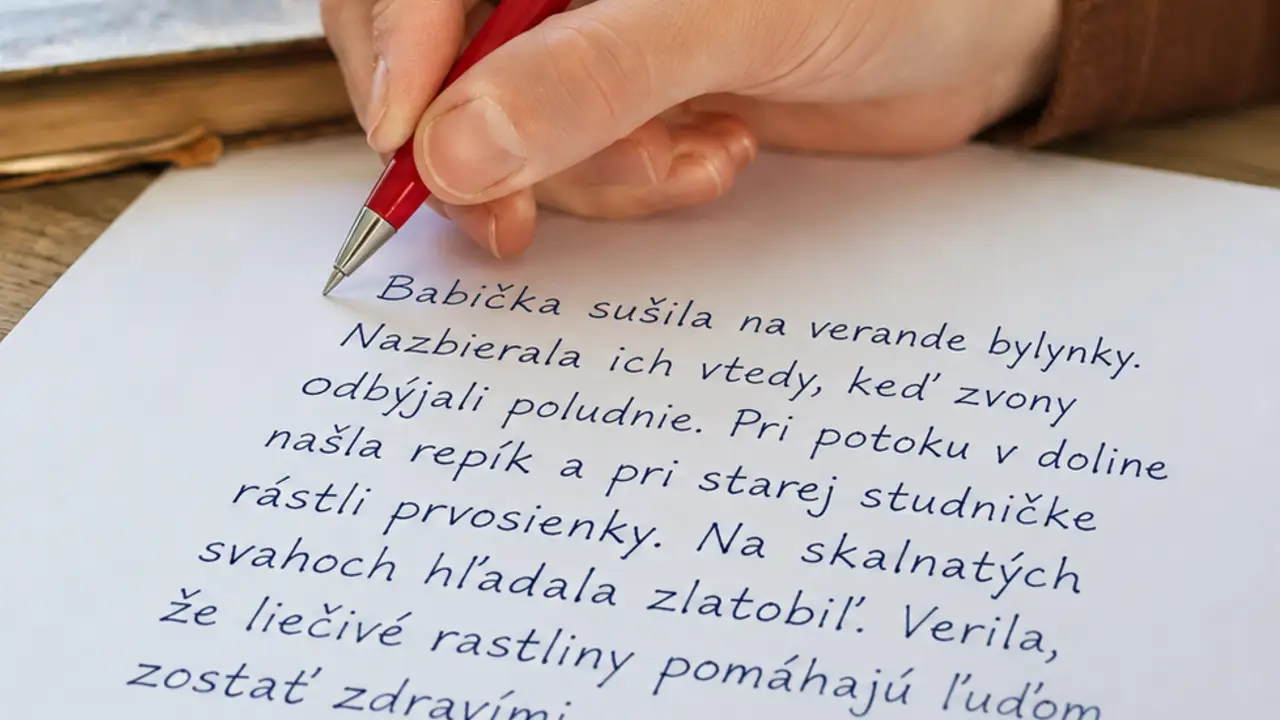 Babička sušila na verande bylynky.
Nazbierala ich vtedy, keď zvony
odbýjali poludnie. Pri potoku v doline
našla repík a pri starej studničke
rástli prvosienky. Na skalnatých
svahoch hľadala zlatobiľ. Verila,
že liečivé rastliny pomáhajú ľuďom
zostať zdravími